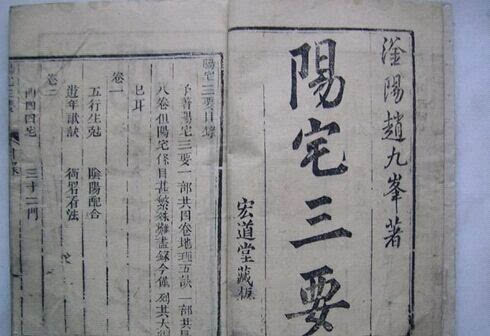 滏陽趙九峯著
陽宅三要
宏道堂藏板
陽宅三要目錄
予著陽宅三要一部共四卷地理五訣一部共
八卷但陽宅條目甚繁難盡錄今僅列其大
已耳
卷一
五行生剋 陰陽配合
遊年歌訣 衙署看法
卷二
四四宅 三十二門